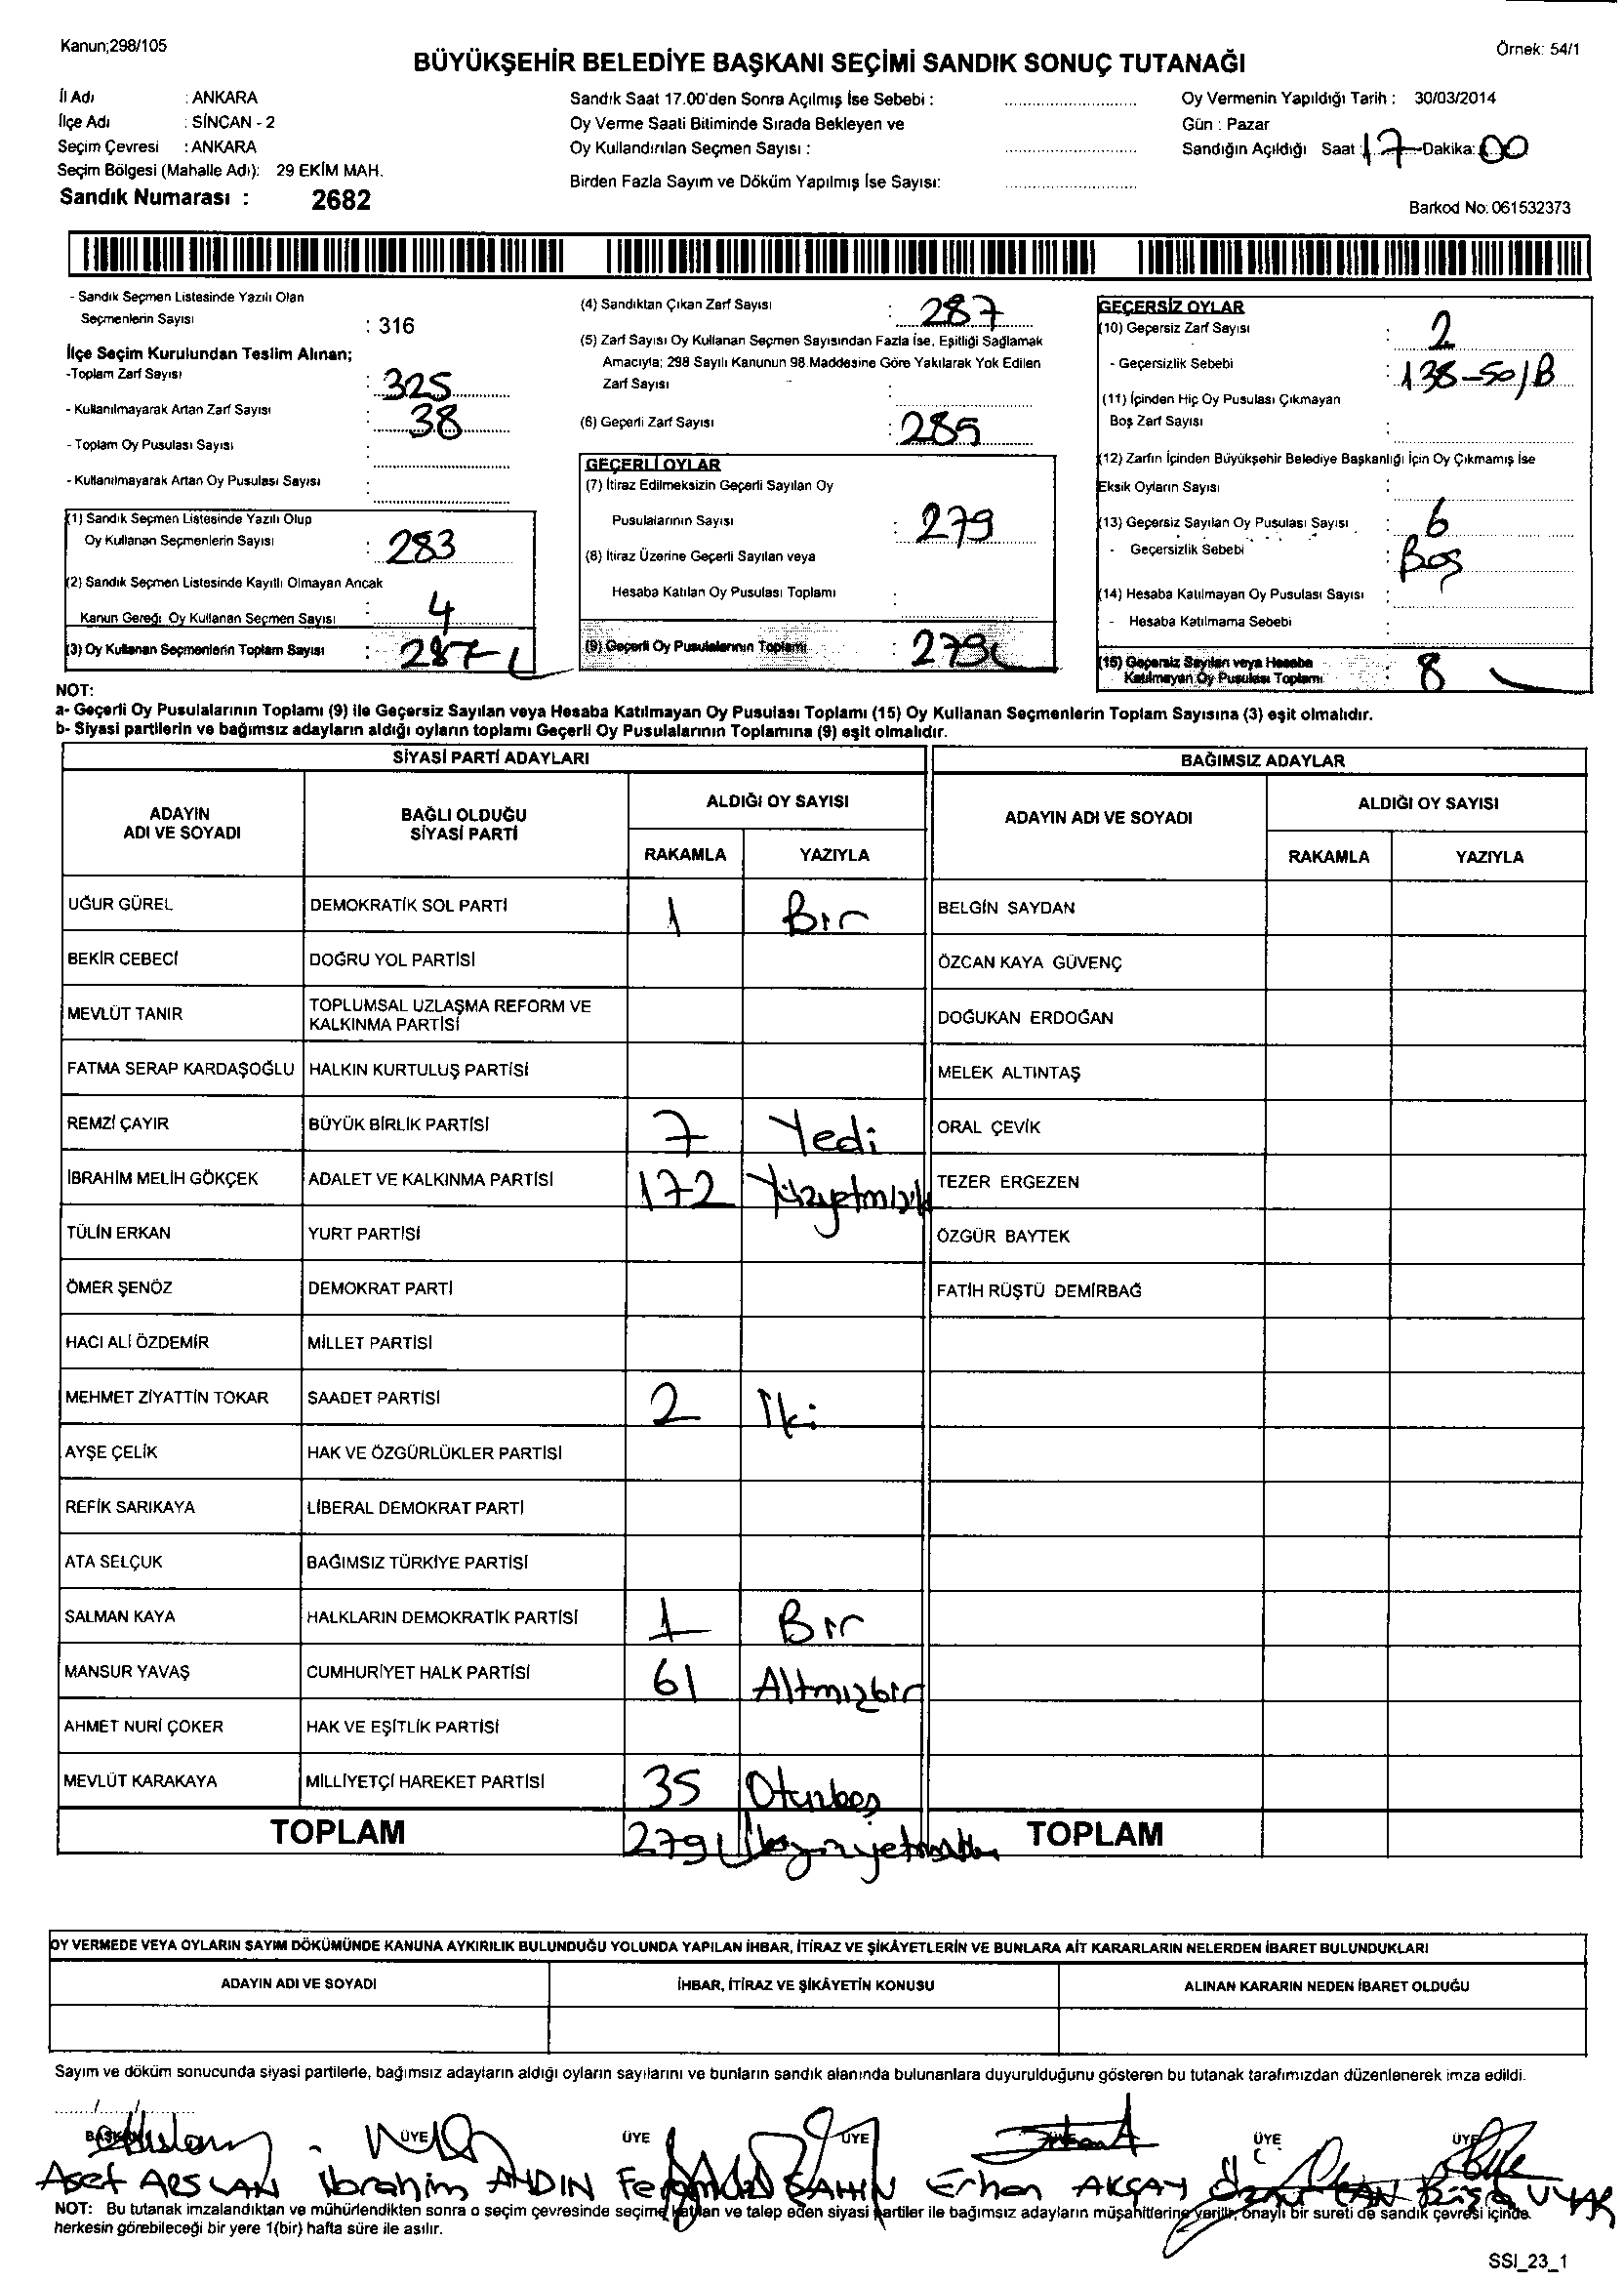 Kanun;298/105
Örnek: 54/1
BÜYÜKŞEHİR BELEDİYE BAŞKANI SEÇİMİ SANDIK SONUÇ TUTANAĞI
İl Adı : ANKARA
İlçe Adı : SİNCAN - 2
Seçim Çevresi : ANKARA
Seçim Bölgesi (Mahalle Adı): 29 EKİM MAH.
Sandık Numarası : 2682
Sandık Saat 17.00'den Sonra Açılmış İse Sebebi :
Oy Verme Saati Bitiminde Sırada Bekleyen ve
Oy Kullandırılan Seçmen Sayısı :
Birden Fazla Sayım ve Döküm Yapılmış İse Sayısı:
Oy Vermenin Yapıldığı Tarih : 30/03/2014
Gün : Pazar
Sandığın Açıldığı Saat : 17 Dakika: 00
Barkod No: 061532373
- Sandık Seçmen Listesinde Yazılı Olan
Seçmenlerin Sayısı : 316
İlçe Seçim Kurulundan Teslim Alınan;
-Toplam Zarf Sayısı : 325
- Kullanılmayarak Artan Zarf Sayısı : 38
- Toplam Oy Pusulası Sayısı :
- Kullanılmayarak Artan Oy Pusulası Sayısı :
(1) Sandık Seçmen Listesinde Yazılı Olup
Oy Kullanan Seçmenlerin Sayısı : 283
(2) Sandık Seçmen Listesinde Kayıtlı Olmayan Ancak
Kanun Gereği Oy Kullanan Seçmen Sayısı : 4
(3) Oy Kullanan Seçmenlerin Toplam Sayısı : 287
(4) Sandıktan Çıkan Zarf Sayısı : 287
(5) Zarf Sayısı Oy Kullanan Seçmen Sayısından Fazla İse, Eşitliği Sağlamak
Amacıyla; 298 Sayılı Kanunun 98.Maddesine Göre Yakılarak Yok Edilen
Zarf Sayısı :
(6) Geçerli Zarf Sayısı : 285
GEÇERLİ OYLAR
(7) İtiraz Edilmeksizin Geçerli Sayılan Oy
Pusulalarının Sayısı : 279
(8) İtiraz Üzerine Geçerli Sayılan veya
Hesaba Katılan Oy Pusulası Toplamı :
(9) Geçerli Oy Pusulalarının Toplamı : 279
GEÇERSİZ OYLAR
(10) Geçersiz Zarf Sayısı : 2
- Geçersizlik Sebebi : 138-50/B
(11) İçinden Hiç Oy Pusulası Çıkmayan
Boş Zarf Sayısı :
(12) Zarfın İçinden Büyükşehir Belediye Başkanlığı İçin Oy Çıkmamış İse
Eksik Oyların Sayısı :
(13) Geçersiz Sayılan Oy Pusulası Sayısı : 6
- Geçersizlik Sebebi : Boş
(14) Hesaba Katılmayan Oy Pusulası Sayısı :
- Hesaba Katılmama Sebebi :
(15) Geçersiz Sayılan veya Hesaba
Katılmayan Oy Pusulası Toplamı : 8
NOT:
a- Geçerli Oy Pusulalarının Toplamı (9) ile Geçersiz Sayılan veya Hesaba Katılmayan Oy Pusulası Toplamı (15) Oy Kullanan Seçmenlerin Toplam Sayısına (3) eşit olmalıdır.
b- Siyasi partilerin ve bağımsız adayların aldığı oyların toplamı Geçerli Oy Pusulalarının Toplamına (9) eşit olmalıdır.
SİYASİ PARTİ ADAYLARI BAĞIMSIZ ADAYLAR
ADAYIN ADI VE SOYADI BAĞLI OLDUĞU SİYASİ PARTİ ALDIĞI OY SAYISI ADAYIN ADI VE SOYADI ALDIĞI OY SAYISI
RAKAMLA YAZIYLA RAKAMLA YAZIYLA
UĞUR GÜREL DEMOKRATİK SOL PARTİ 1 Bir BELGİN SAYDAN
BEKİR CEBECİ DOĞRU YOL PARTİSİ ÖZCAN KAYA GÜVENÇ
MEVLÜT TANIR TOPLUMSAL UZLAŞMA REFORM VE KALKINMA PARTİSİ DOĞUKAN ERDOĞAN
FATMA SERAP KARDAŞOĞLU HALKIN KURTULUŞ PARTİSİ MELEK ALTINTAŞ
REMZİ ÇAYIR BÜYÜK BİRLİK PARTİSİ 7 Yedi ORAL ÇEVİK
İBRAHİM MELİH GÖKÇEK ADALET VE KALKINMA PARTİSİ 172 Yüzyetmişik TEZER ERGEZEN
TÜLİN ERKAN YURT PARTİSİ ÖZGÜR BAYTEK
ÖMER ŞENÖZ DEMOKRAT PARTİ FATİH RÜŞTÜ DEMİRBAĞ
HACI ALİ ÖZDEMİR MİLLET PARTİSİ
MEHMET ZİYATTİN TOKAR SAADET PARTİSİ 2 İki
AYŞE ÇELİK HAK VE ÖZGÜRLÜKLER PARTİSİ
REFİK SARIKAYA LİBERAL DEMOKRAT PARTİ
ATA SELÇUK BAĞIMSIZ TÜRKİYE PARTİSİ
SALMAN KAYA HALKLARIN DEMOKRATİK PARTİSİ 1 Bir
MANSUR YAVAŞ CUMHURİYET HALK PARTİSİ 61 Altmışbir
AHMET NURİ ÇOKER HAK VE EŞİTLİK PARTİSİ
MEVLÜT KARAKAYA MİLLİYETÇİ HAREKET PARTİSİ 35 Otuzbeş
TOPLAM 279 TOPLAM
OY VERMEDE VEYA OYLARIN SAYIM DÖKÜMÜNDE KANUNA AYKIRILIK BULUNDUĞU YOLUNDA YAPILAN İHBAR, İTİRAZ VE ŞİKÂYETLERİN VE BUNLARA AİT KARARLARIN NELERDEN İBARET BULUNDUKLARI
ADAYIN ADI VE SOYADI İHBAR, İTİRAZ VE ŞİKÂYETİN KONUSU ALINAN KARARIN NEDEN İBARET OLDUĞU
Sayım ve döküm sonucunda siyasi partilerle, bağımsız adayların aldığı oyların sayılarını ve bunların sandık alanında bulunanlara duyurulduğunu gösteren bu tutanak tarafımızdan düzenlenerek imza edildi.
BAŞKAN ÜYE ÜYE ÜYE ÜYE ÜYE
Aset ARSLAN İbrahim AYDIN ŞAHİN Erhan AKÇAY UYAR
NOT: Bu tutanak imzalandıktan ve mühürlendikten sonra o seçim çevresinde seçime katılan ve talep eden siyasi partiler ile bağımsız adayların müşahitlerine verilir, onaylı bir sureti de sandık çevresi içinde
herkesin görebileceği bir yere 1(bir) hafta süre ile asılır.
SSI_23_1